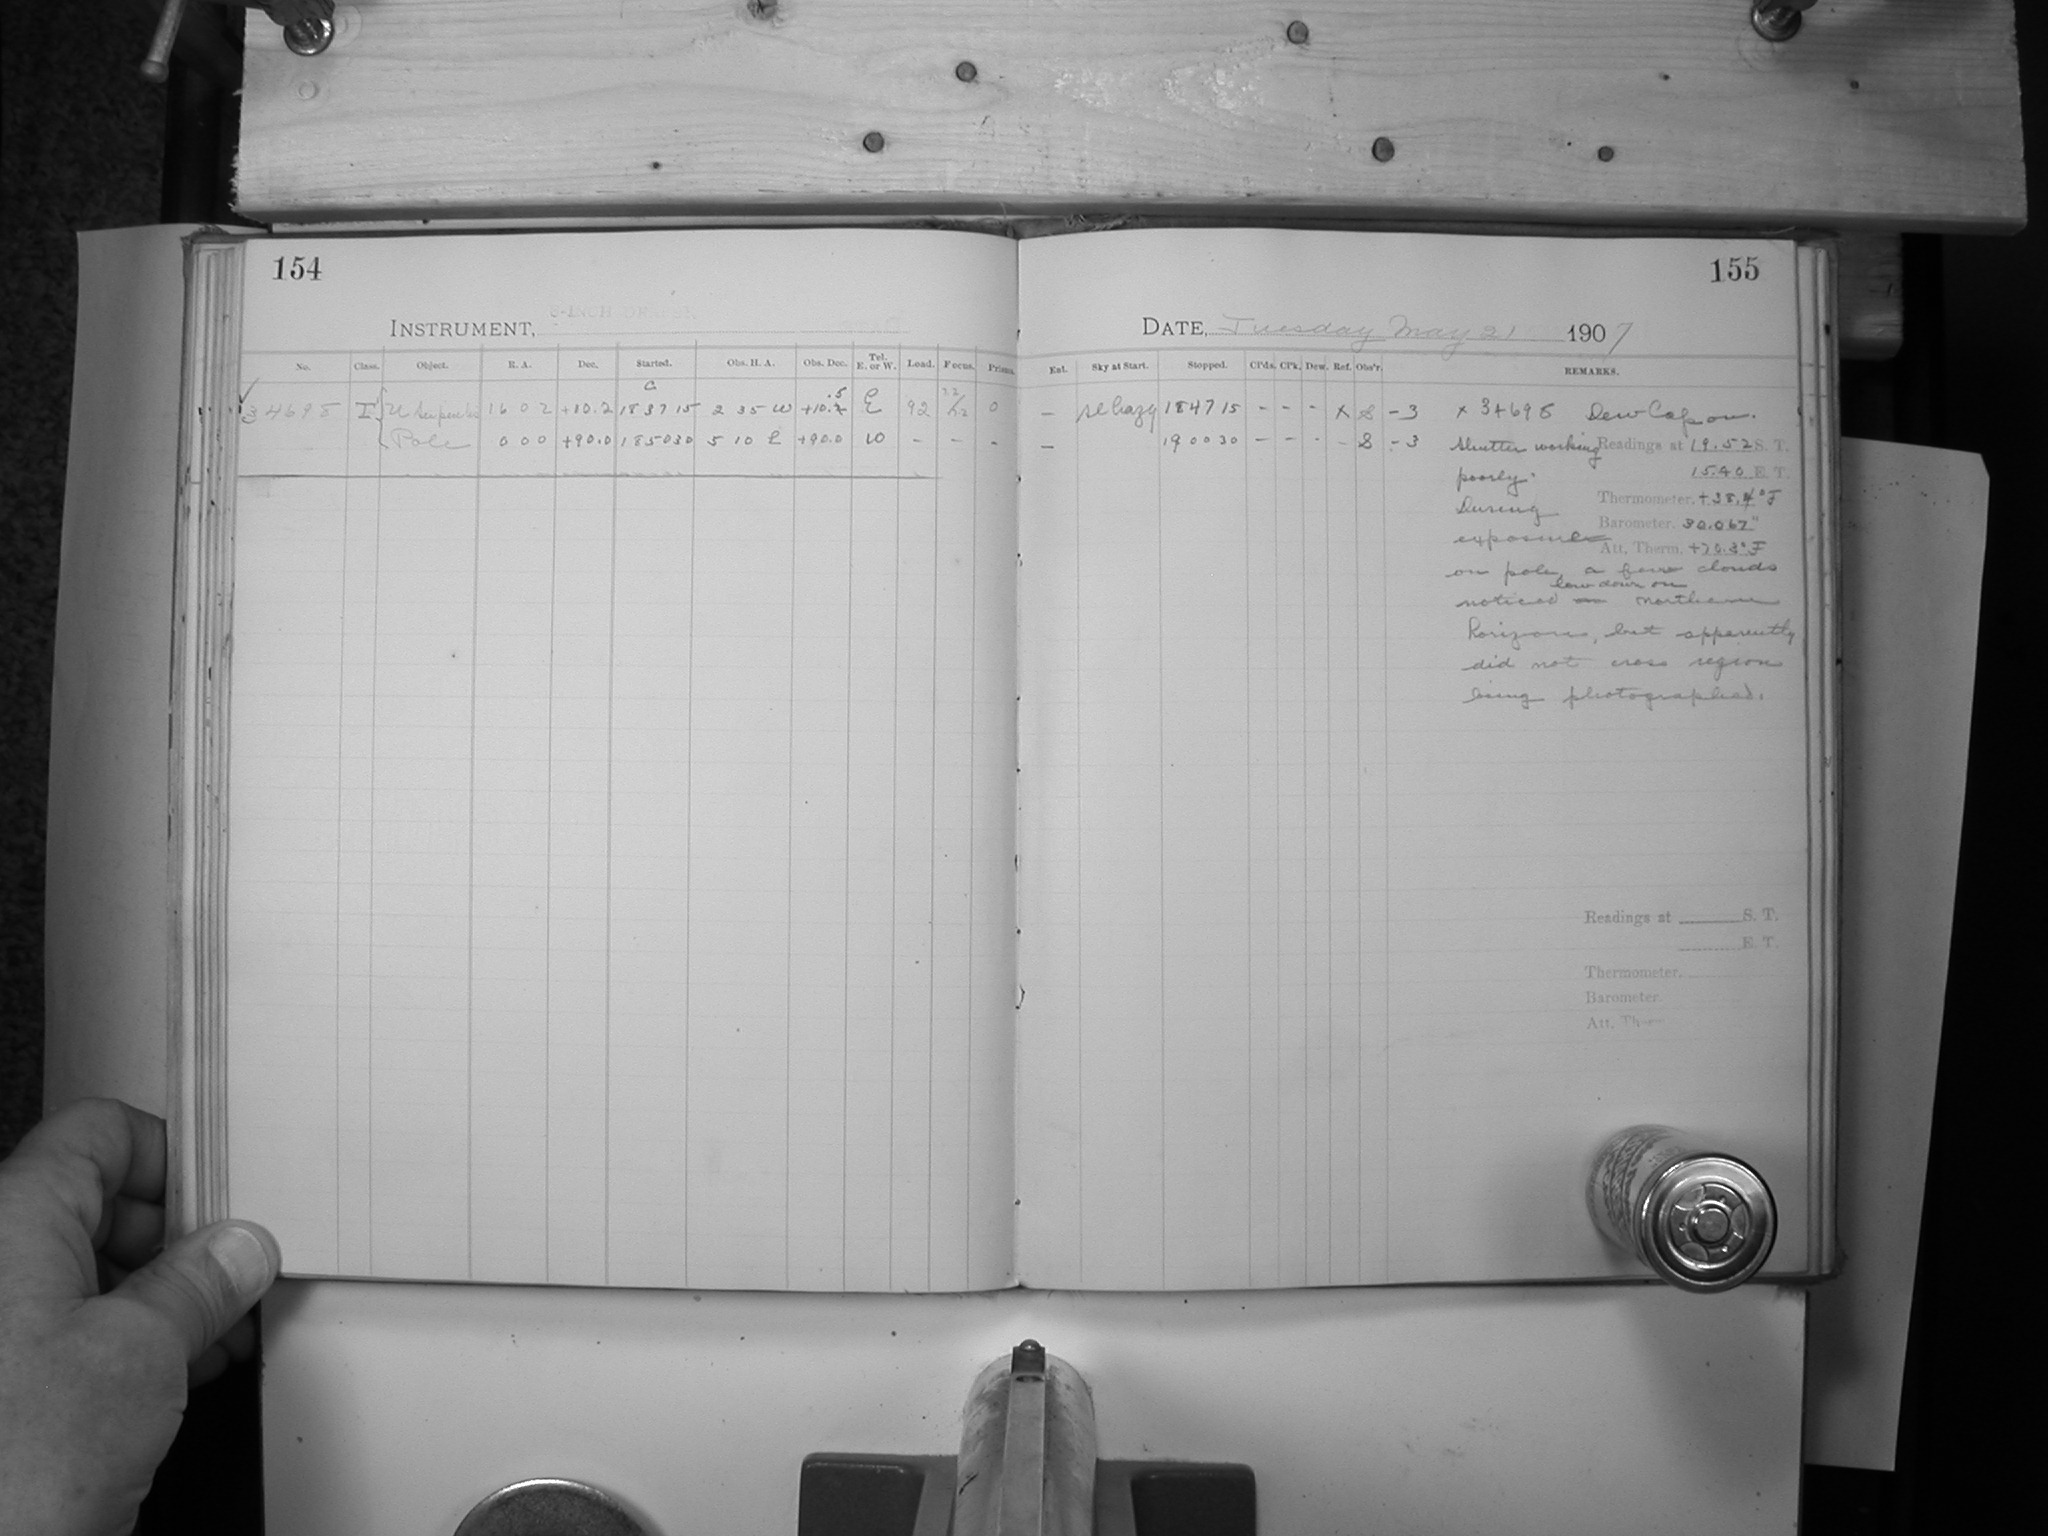 154
INSTRUMENT,
No. Class. Object. R. A. Dec. Started. Obs. H. A. Obs. Dec. Tel. E. or W. Load. Focus. Prisms.
34698 I U Serpentis 16 0 2 +10.2 18 37 15 2 35 W +10.5 E 92 0
Pole 0 0 0 +90.0 18 50 30 5 10 E +90.0 W - - -
155
DATE, Tuesday May 21 1907
Ent. Sky at Start. Stopped. Cl'ds. Cl'k. Dew. Ref. Obs'r. REMARKS.
- sl hazy 18 47 15 - - - x S - 3 x 34698 Dew Cap on.
- 19 00 30 - - - - S - 3 Shutter working Readings at 19.52 S. T.
poorly. 15.40 E. T.
During Thermometer. +38.4°F
Barometer. 30.067"
exposure Att. Therm. +70.3°F
on pole, a few clouds
low down on
noticed northern
horizon, but apparently
did not cross region
being photographed.
Readings at S. T.
E. T.
Thermometer.
Barometer.
Att. Therm